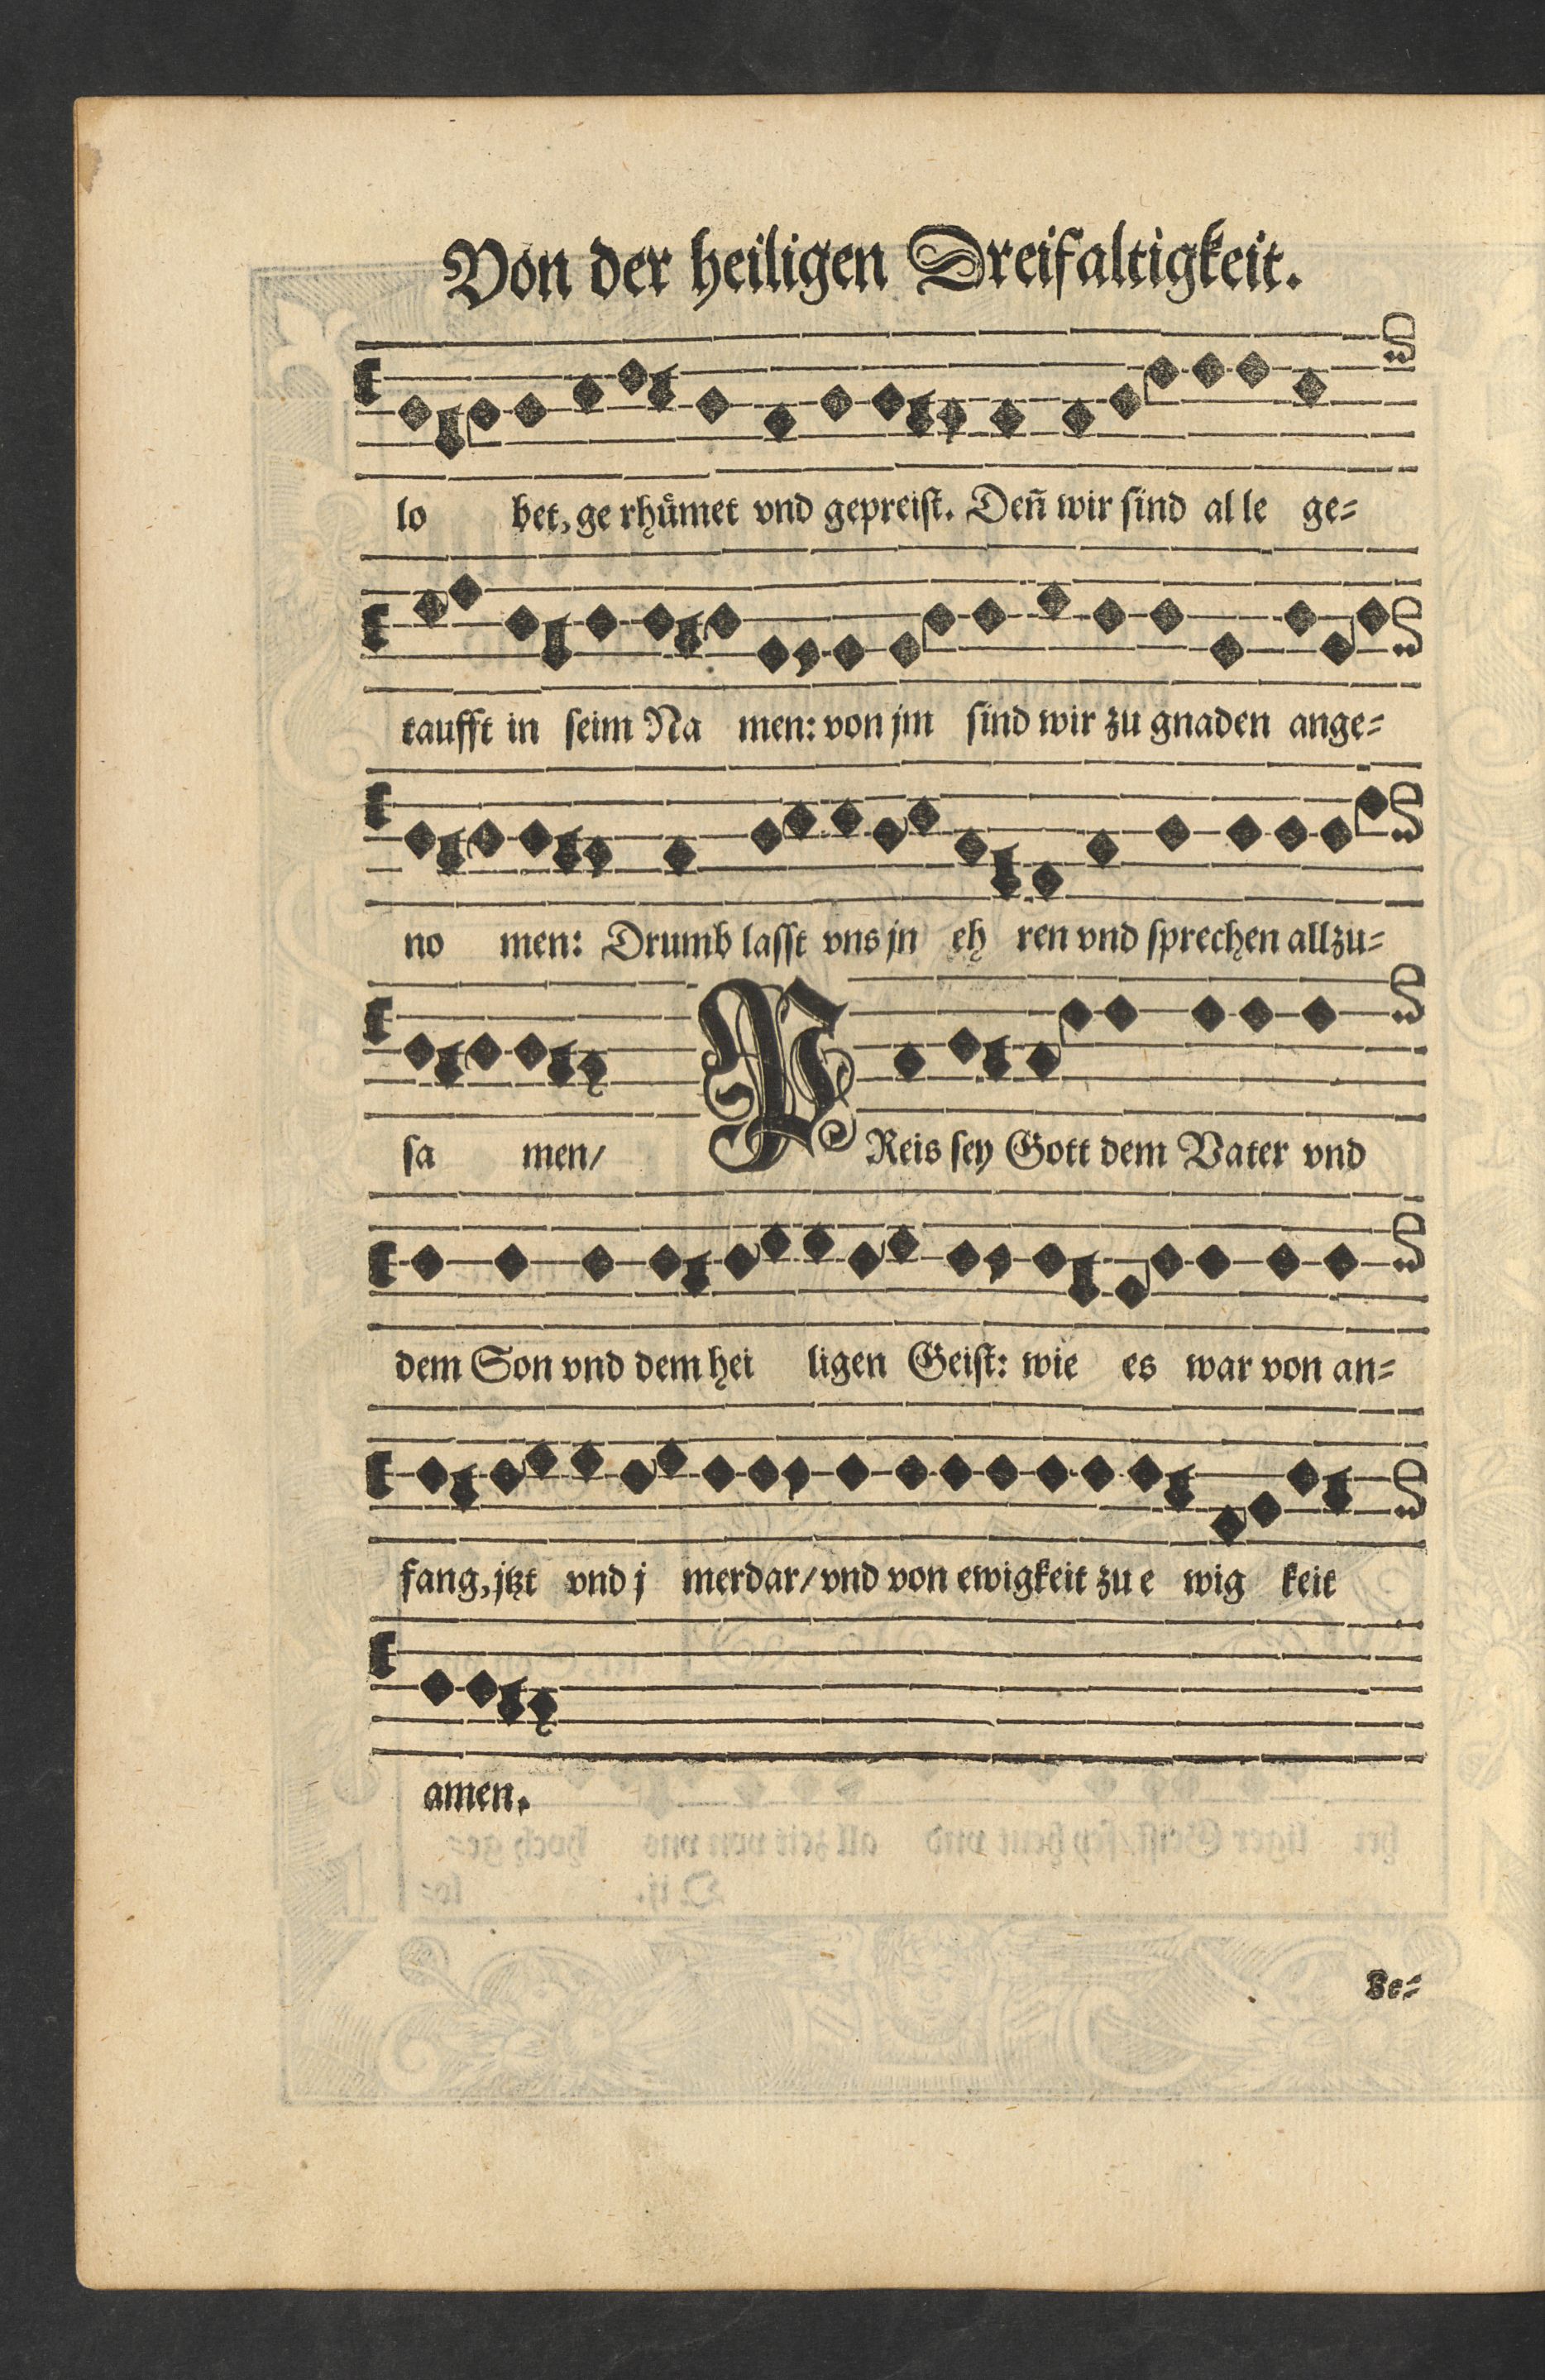 Von der heiligen Dreifaltigkeit.
lo bet, ge rhuͤmet vnd gepreiſt. Deñ wir ſind al le ge⸗
taufft in ſeim Na men: von jm ſind wir zu gnaden ange⸗
no men: Drumb laſſt vns jn eh ren vnd ſprechen allzu⸗
ſa men/ PReis ſey Gott dem Vater vnd
dem Son vnd dem hei ligen Geiſt: wie es war von an⸗
fang, jtzt vnd j merdar/ vnd von ewigkeit zu e wig keit
amen.
Be⸗